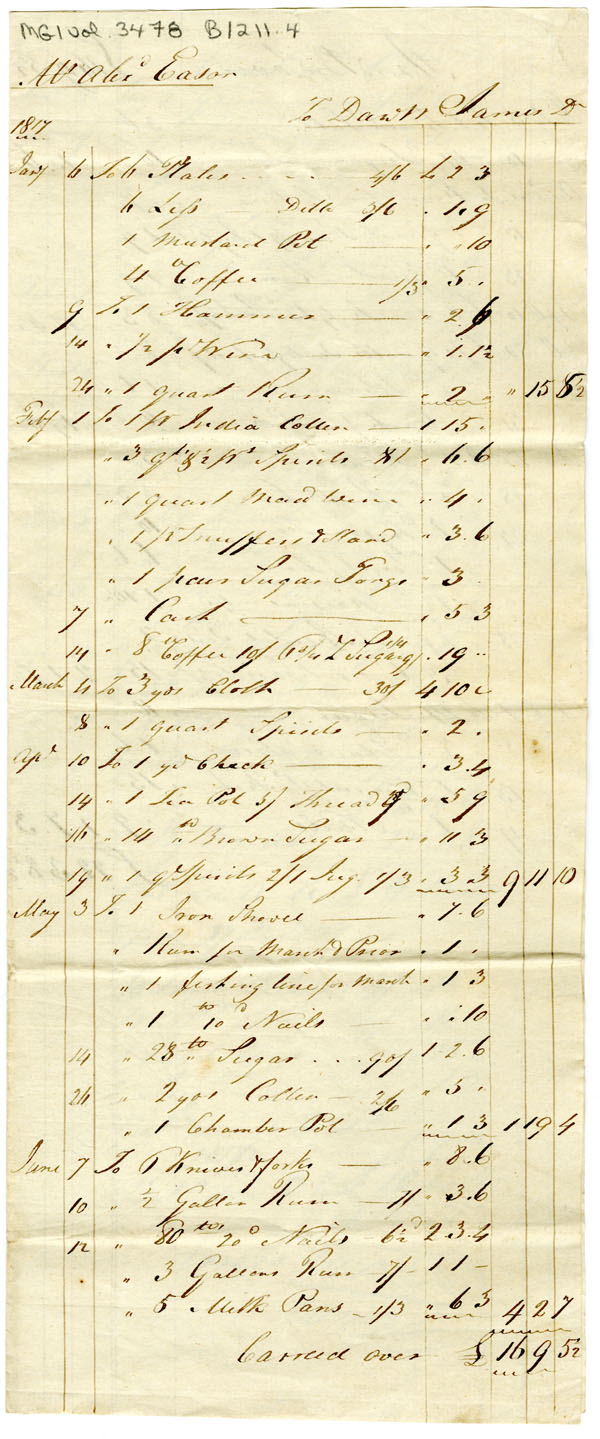 MG1 Vol. 3478 B1211.4
Mr Alexr Eason
To David James Dr
1817
Jany 6 To 6 Plates .. .. 4/6 £ 2 3
6 Less Ditto 3/6 " 1. 9
1 Mustard Pot " " 10
4 lb Coffee 1/3 " 5 "
9 To 1 Hammer " 2. 6
14 " 1/2 pt Wine " 1. 1½
24 " 1 quart Rum " 2 " " 15 5½
Feby 1 To 1 ps India Cotton 1 15 "
" 3 qts & ½ pt Spirits " 6. 6
" 1 quart Mad Wine " 4 "
" 1 pr Snuffers & Stand " 3. 6
" 1 pair Sugar Tongs " 3
7 " Cash " 5 3
14 " 8 lb Coffee 10/ Sugar 9/ " 19 "
March 4 To 3 yds Cloth 30/ 4 10 "
8 " 1 quart Spirits " 2 "
Apl 10 To 1 yd Check " 3. 4
14 " 1 Tea Pot 5/ Thread 9 " 5 9
16 " 14 lb Brown Sugar " 11 3
19 " 1 qt Spirits 2/ 1 Jug 1/3 " 3 3 9 11 10
May 3 To 1 Iron Shovel " 7. 6
" Rum for March & Prior " 1 "
" 1 fishing line for March " 1 3
" 1 lb 10d Nails " " 10
14 " 28 lb Sugar . . . 90/ 1. 2. 6
26 " 2 yds Cotton 2/6 " 5 "
" 1 Chamber Pot " 1 3 1 19 4
June 7 To 6 Knives & forks " 8. 6
10 " ½ Gallon Rum 7/ " 3. 6
12 " 80 lbs 20d Nails 6½d 2. 3. 4
" 3 Gallons Rum 7/ 1 1 –
" 5 Milk Pans 1/3 " 6 3 4 2 7
Carried over £ 16 9 5½